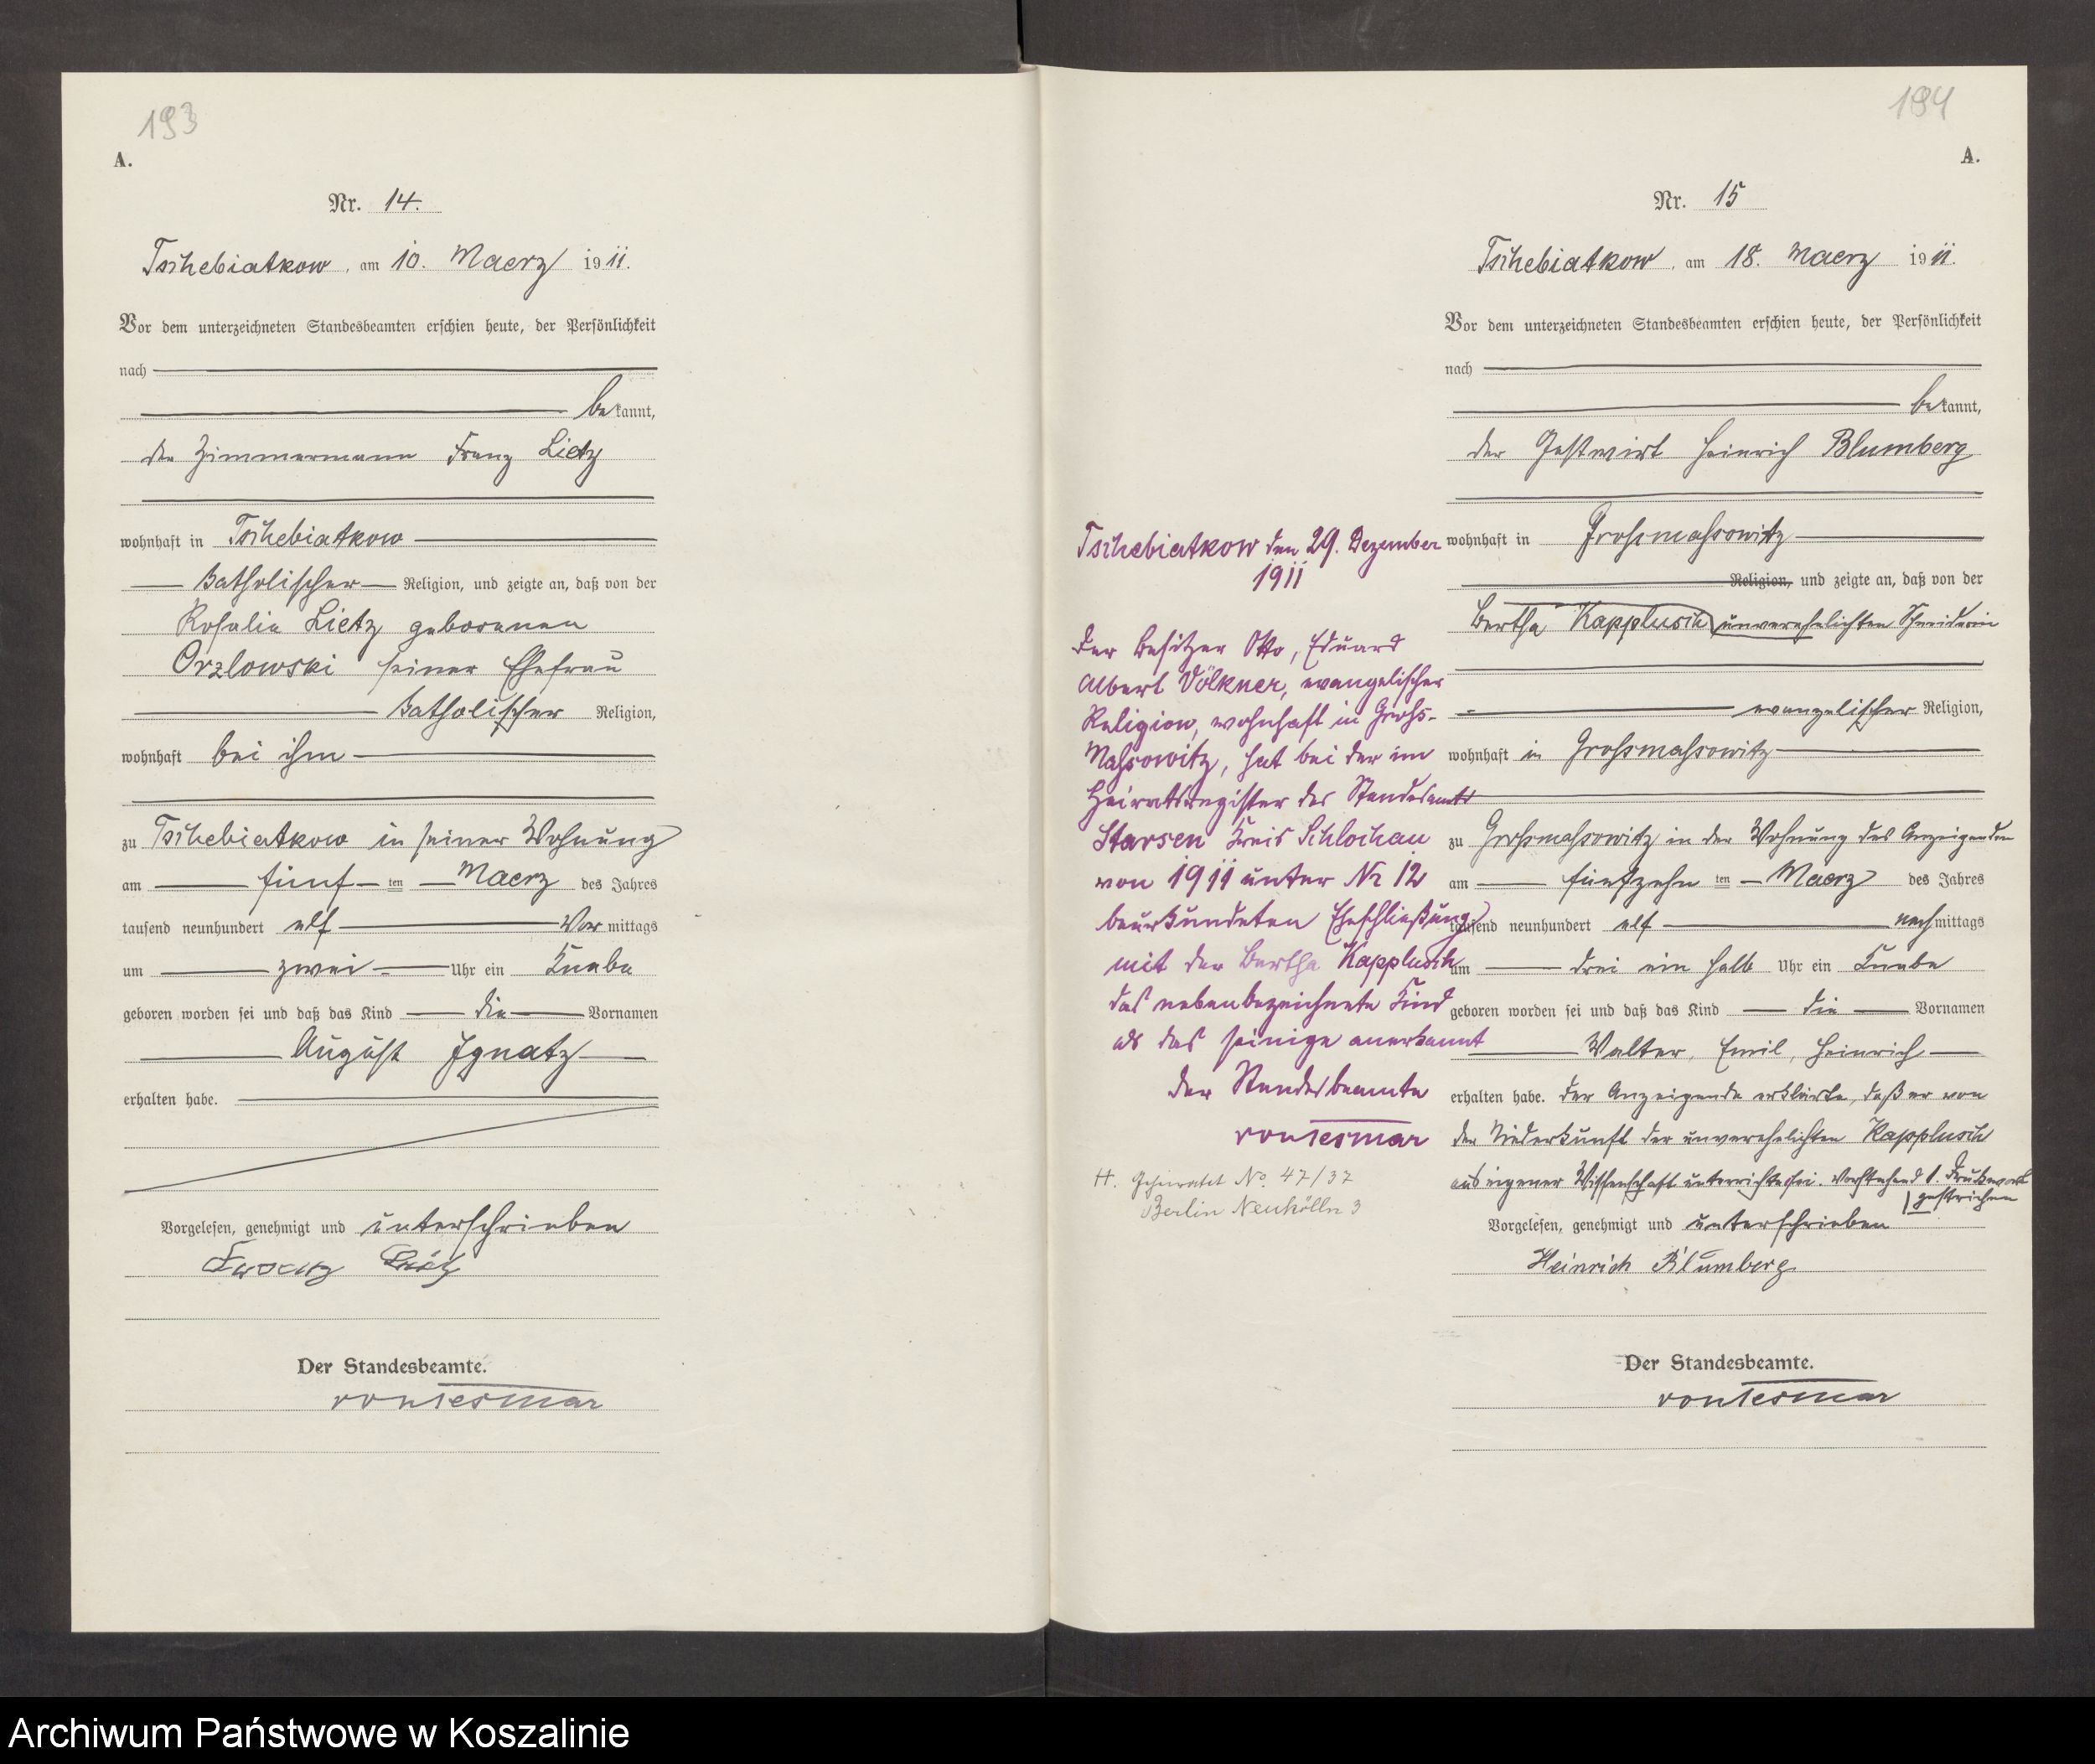 193
A.
Nr. 14.
Tschebiatkow, am 10. Maerz 1911.
Vor dem unterzeichneten Standesbeamten erschien heute, der Persönlichkeit
nach
bekannt,
der Zimmermann Franz Lietz
wohnhaft in Tschebiatkow
katholischer Religion, und zeigte an, daß von der
Rosalie Lietz geborenen
Orzlowski seiner Ehefrau
katholischer Religion,
wohnhaft bei ihm
zu Tschebiatkow in seiner Wohnung
am fünf ten Maerz des Jahres
tausend neunhundert elf Vormittags
um zwei Uhr ein Knabe
geboren worden sei und daß das Kind die Vornamen
August Ignatz
erhalten habe.
Vorgelesen, genehmigt und unterschrieben
Franz Lietz
Der Standesbeamte.
von Tesmar
194
A.
Nr. 15
Tschebiatkow, am 18. Maerz 1911.
Vor dem unterzeichneten Standesbeamten erschien heute, der Persönlichkeit
nach
bekannt,
der Gastwirt Heinrich Blumberg
wohnhaft in Grossmassowitz
Religion, und zeigte an, daß von der
Bertha Kapplusch unverehelichten Schneiderin
evangelischer Religion,
wohnhaft in Grossmassowitz
zu Grossmassowitz in der Wohnung des Anzeigenden
am fünfzehn ten Maerz des Jahres
tausend neunhundert elf nachmittags
um drei ein halb Uhr ein Knabe
geboren worden sei und daß das Kind die Vornamen
Walter, Emil, Heinrich
erhalten habe. Der Anzeigende erklärte, daß er von
der Niederkunft der unverehelichten Kapplusch
aus eigener Wissenschaft unterrichtet sei. Vorstehend 1. Druckwort
gestrichen
Vorgelesen, genehmigt und unterschrieben
Heinrich Blumberg
Der Standesbeamte.
von Tesmar
Tschebiatkow den 29. Dezember
1911
Der Besitzer Otto, Eduard
Albert Völkner, evangelischer
Religion, wohnhaft in Gross-
Massowitz, hat bei der im
Heiratsregister des Standesamts
Starsen Kreis Schlochau
von 1911 unter Nr 12
beurkundeten Eheschließung
mit der Bertha Kapplusch
das nebenbezeichnete Kind
als das seinige anerkannt
Der Standesbeamte
von Tesmar
H. Geheiratet No. 47/37
Berlin Neukölln 3
Archiwum Państwowe w Koszalinie